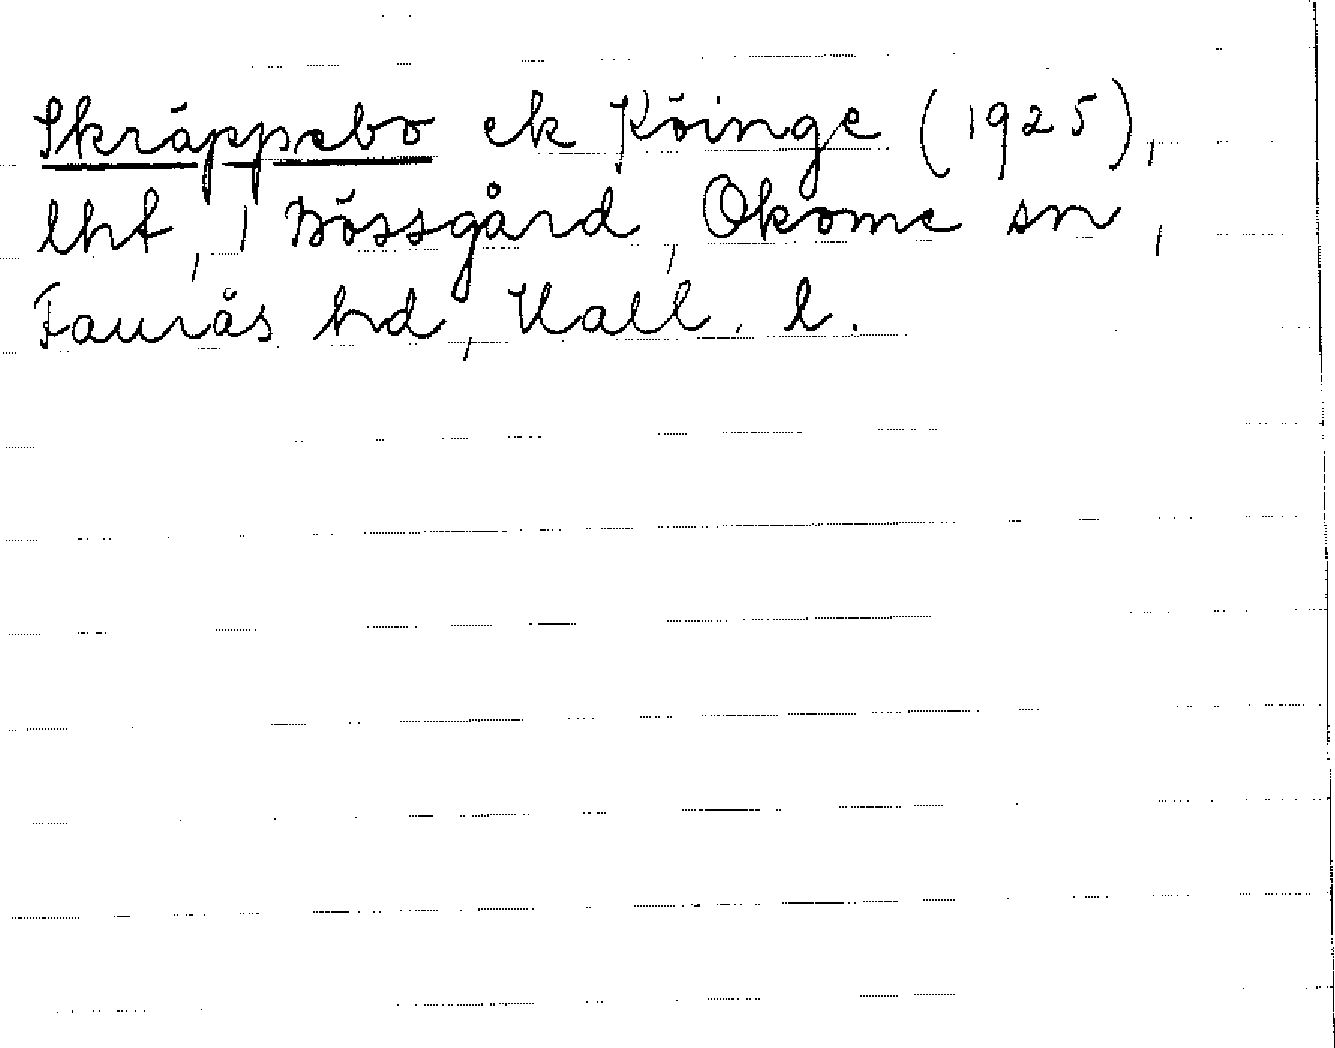 Skräppebo ek Köinge (1925),
lht, 1 Bössgård, Okome sn,
Faurås hd, Hall. l.